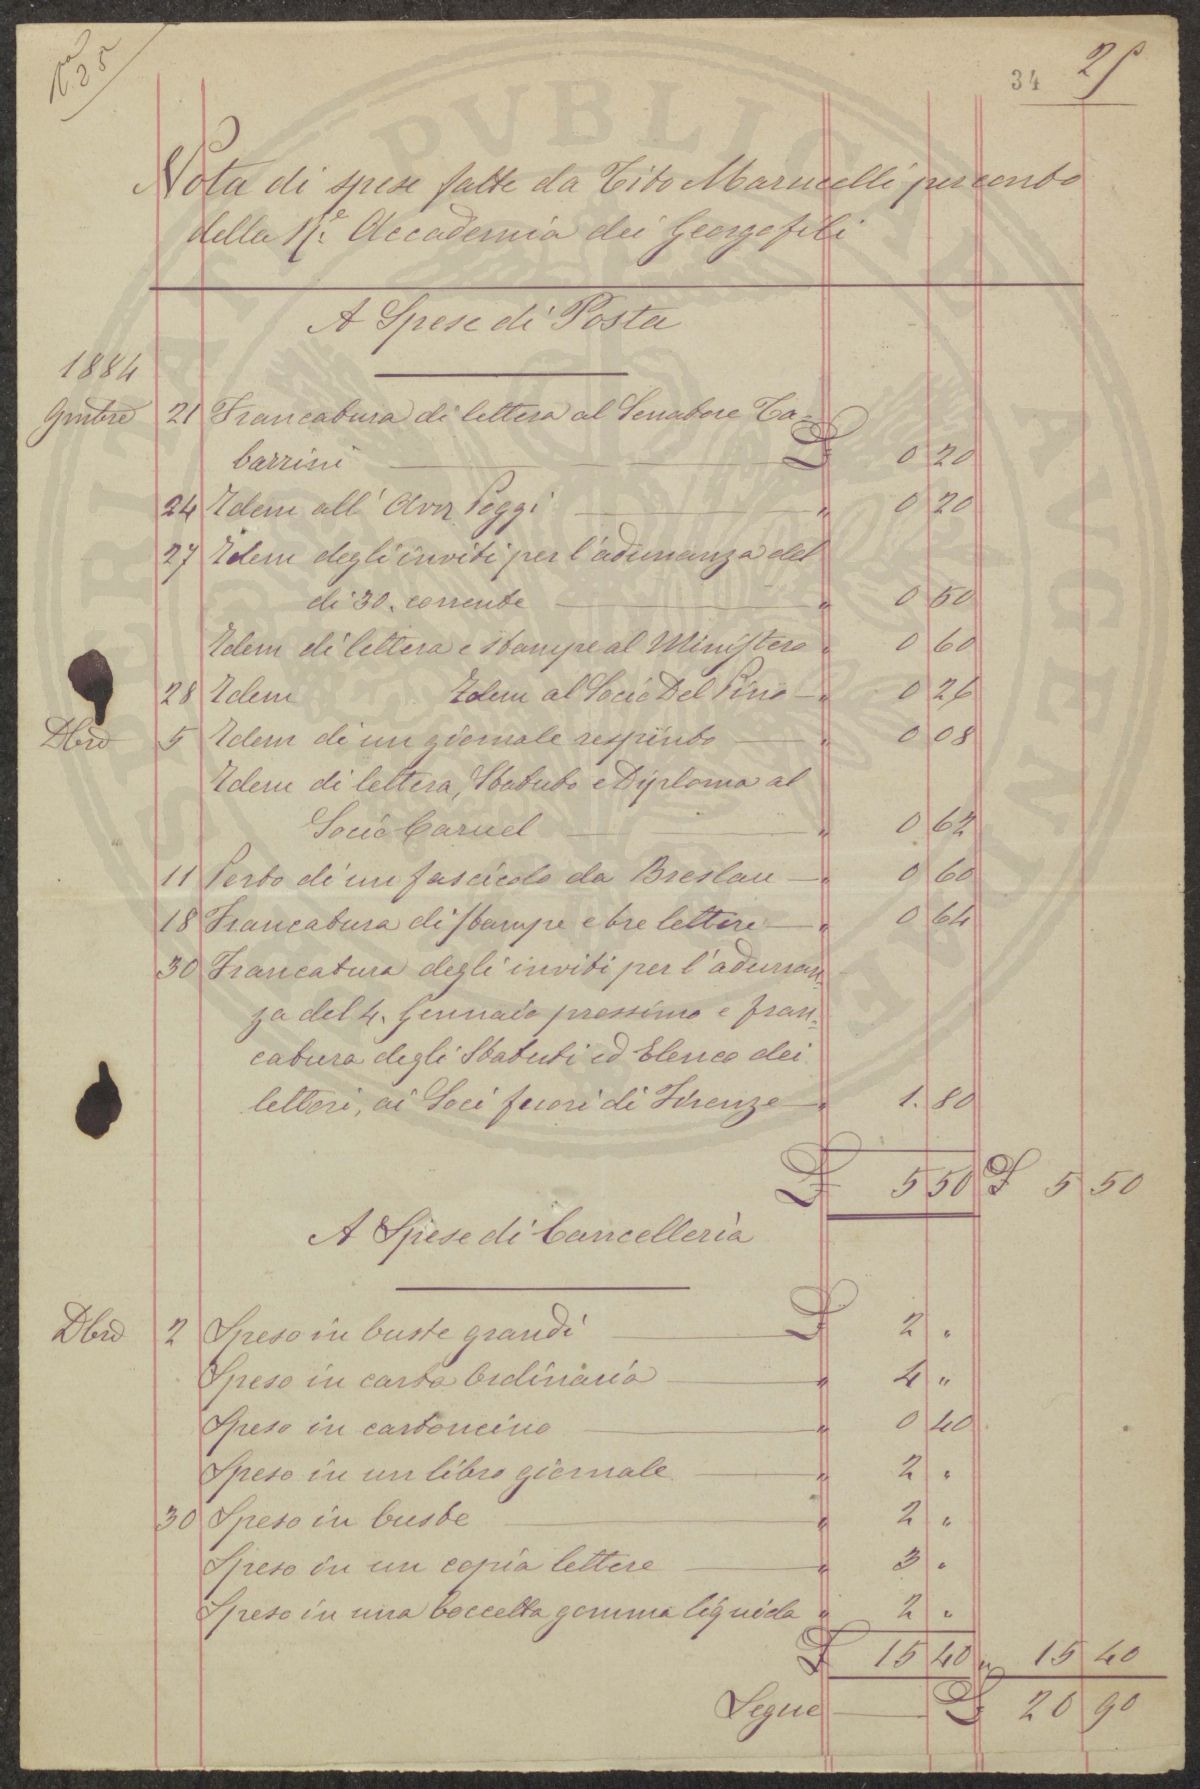 Nº 25
34 25
Nota di spese fatte da Tito Marucelli per conto
della Rˡᵉ Accademia dei Georgofili
A Spese di Posta
1884
9mbre 21 Francatura di lettera al Senatore Ta=
barrini £ 0 20
24 Idem all' Avv. Poggi " 0 20
27 Idem degli inviti per l'adunanza del
di 30. corrente " 0 50
Idem di lettera e stampe al Ministero " 0 60
28 Idem Idem al Socio Del Pino " 0 26
Dbre 5 Idem di un giornale respinto " 0 08
Idem di lettera, Statuto e Diploma al
Socio Caruel " 0 62
11 Porto di un fascicolo da Breslau " 0 60
18 Francatura di stampe e tre lettere " 0 64
30 Francatura degli inviti per l'adunan=
za del 4. Gennaio prossimo e fran=
catura degli Statuti ed Elenco dei
lettori, ai Soci fuori di Firenze " 1. 80
£ 5 50 £ 5 50
A Spese di Cancelleria
Dbre 2 Speso in buste grandi £ 2 "
Speso in carta ordinaria " 4 "
Speso in cartoncino " 0 40
Speso in un libro giornale " 2 "
30 Speso in buste " 2 "
Speso in un copia lettere " 3 "
Speso in una boccetta gomma liquida " 2 "
£ 15 40 " 15 40
Segue £ 20 90